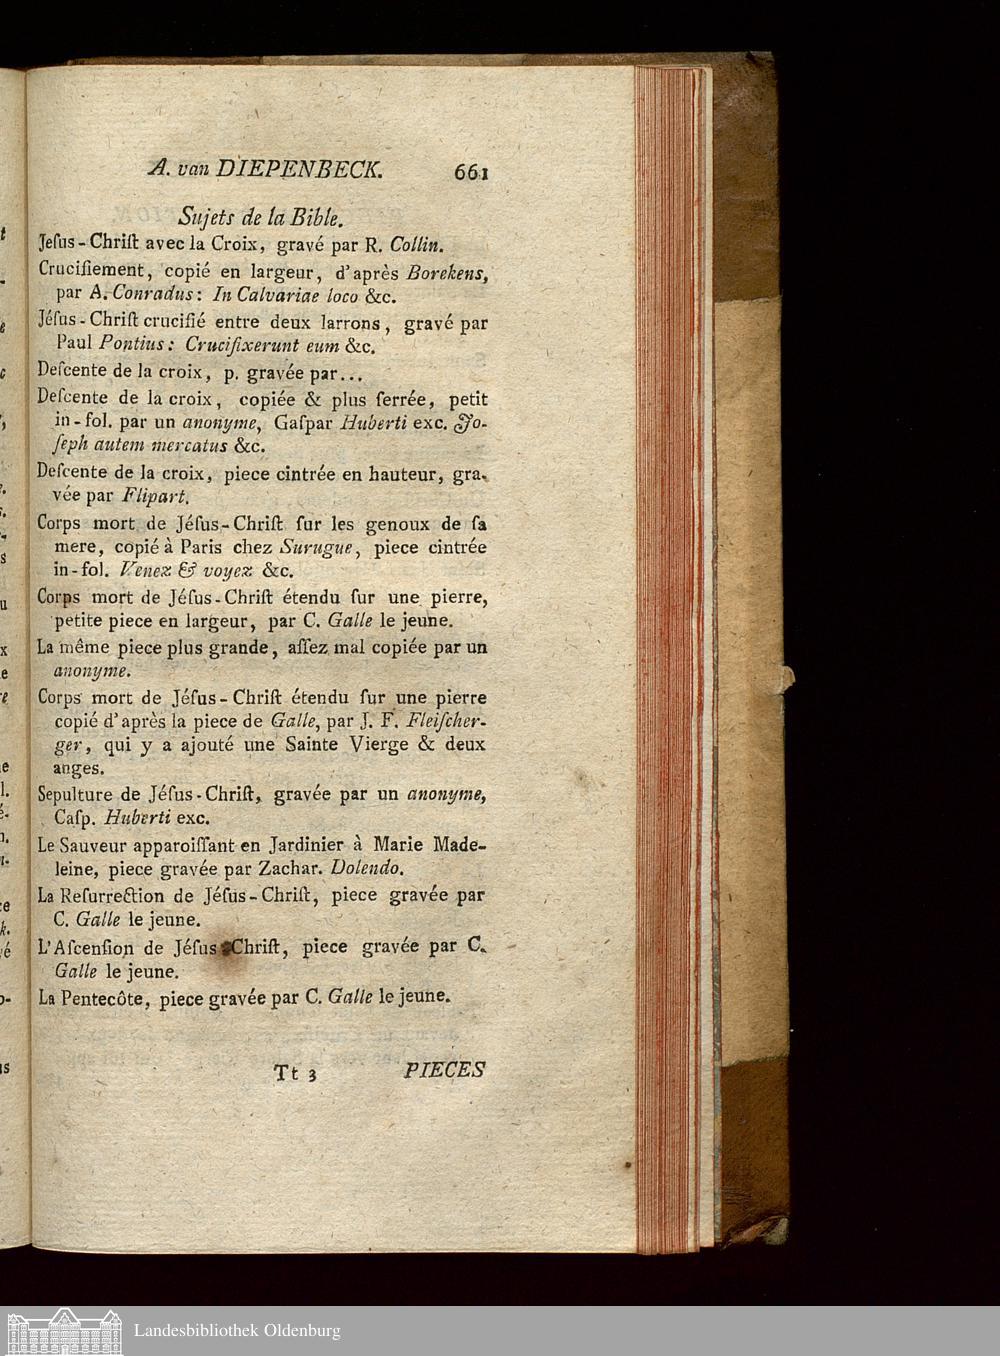 A. van DIEPENBECK. 661
Sujets de la Bible.
Jeſus-Chriſt avec la Croix, gravé par R. Collin.
Crucifiement, copié en largeur, d'après Borekens,
par A. Conradus: In Calvariae loco &c.
Jéſus-Chriſt crucifié entre deux larrons, gravé par
Paul Pontius: Crucifixerunt eum &c.
Deſcente de la croix, p. gravée par...
Deſcente de la croix, copiée & plus ſerrée, petit
in-fol. par un anonyme, Gaſpar Huberti exc. Jo-
ſeph autem mercatus &c.
Deſcente de la croix, piece cintrée en hauteur, gra-
vée par Flipart.
Corps mort de Jéſus-Chriſt ſur les genoux de ſa
mere, copié à Paris chez Surugue, piece cintrée
in-fol. Venez & voyez &c.
Corps mort de Jéſus-Chriſt étendu ſur une pierre,
petite piece en largeur, par C. Galle le jeune.
La même piece plus grande, aſſez mal copiée par un
anonyme.
Corps mort de Jéſus-Chriſt étendu ſur une pierre
copié d'après la piece de Galle, par J. F. Fleiſcher-
ger, qui y a ajouté une Sainte Vierge & deux
anges.
Sepulture de Jéſus-Chriſt, gravée par un anonyme,
Caſp. Huberti exc.
Le Sauveur apparoiſſant en Jardinier à Marie Made-
leine, piece gravée par Zachar. Dolendo.
La Reſurrection de Jéſus-Chriſt, piece gravée par
C. Galle le jeune.
L'Aſcenſion de Jéſus-Chriſt, piece gravée par C.
Galle le jeune.
La Pentecôte, piece gravée par C. Galle le jeune.
Tt 3 PIECES
Landesbibliothek Oldenburg